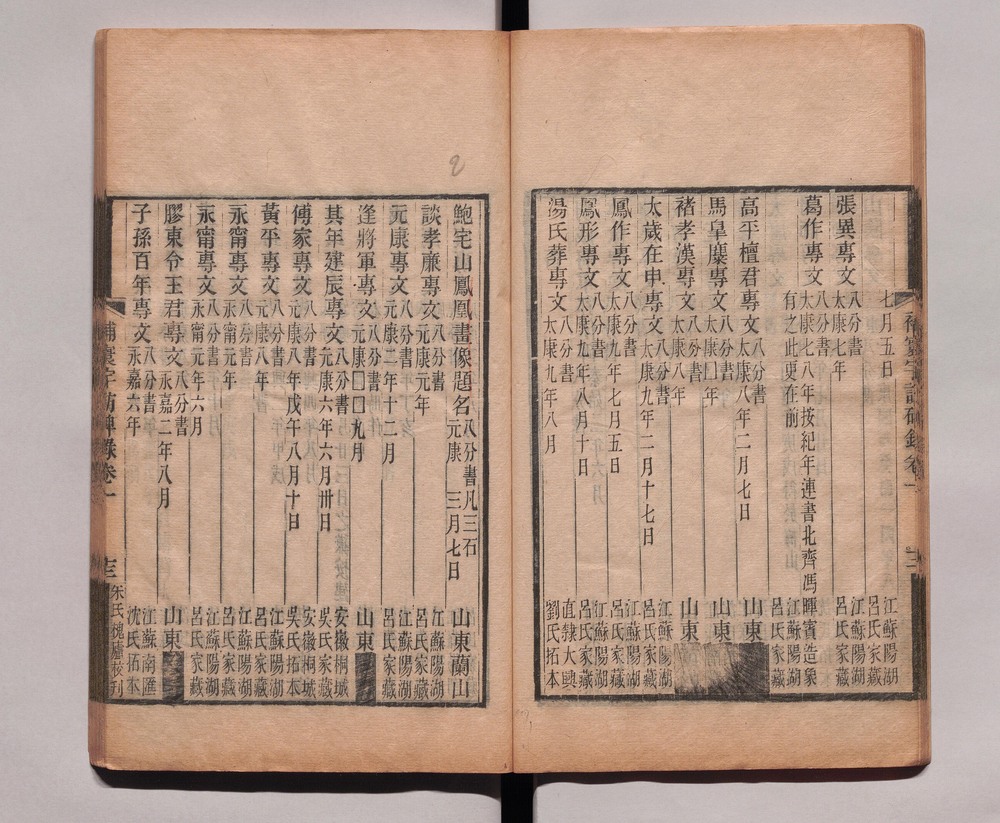 七月五日 江蘇陽湖呂氏家藏
張異專文 八分書 太康七年 江蘇陽湖呂氏家藏
葛作專文 八分書 太康七八年按紀年連書北齊馮暉賓造象有之此更在前 江蘇陽湖呂氏家藏
高平檀君專文 八分書 太康八年二月七日 山東
馬皐麋專文 八分書 太康囗年 山東
褚孝漢專文 八分書 太康八年 山東
太歲在申專文 八分書 太康九年二月十七日 江蘇陽湖呂氏家藏
鳳作專文 八分書 太康九年七月五日 江蘇陽湖呂氏家藏
鳳形專文 八分書 太康九年八月十日 江蘇陽湖呂氏家藏
湯氏葬專文 八分書 太康九年八月 直隸大興劉氏拓本
補寰宇訪碑錄卷一 十二
鮑宅山鳳凰畫像題名 八分書凡三石 元康 三月七日 山東蘭山
談孝廉專文 八分書 元康元年 江蘇陽湖呂氏家藏
元康專文 八分書 元康二年十二月 江蘇陽湖呂氏家藏
逄將軍專文 八分書 元康囗囗九月 山東
其年建辰專文 八分書 元康六年六月卅日 安徽桐城吳氏家藏
傅家專文 八分書 元康八年戊午八月十日 安徽桐城吳氏拓本
黃平專文 八分書 元康八年 江蘇陽湖呂氏家藏
永甯專文 八分書 永甯元年 江蘇陽湖呂氏家藏
永甯專文 八分書 永甯元年六月 江蘇陽湖呂氏家藏
膠東令王君專文 八分書 永嘉二年八月 山東
子孫百年專文 八分書 永嘉六年 江蘇南匯沈氏拓本
補寰宇訪碑錄卷一 十三 朱氏槐廬校刊
2